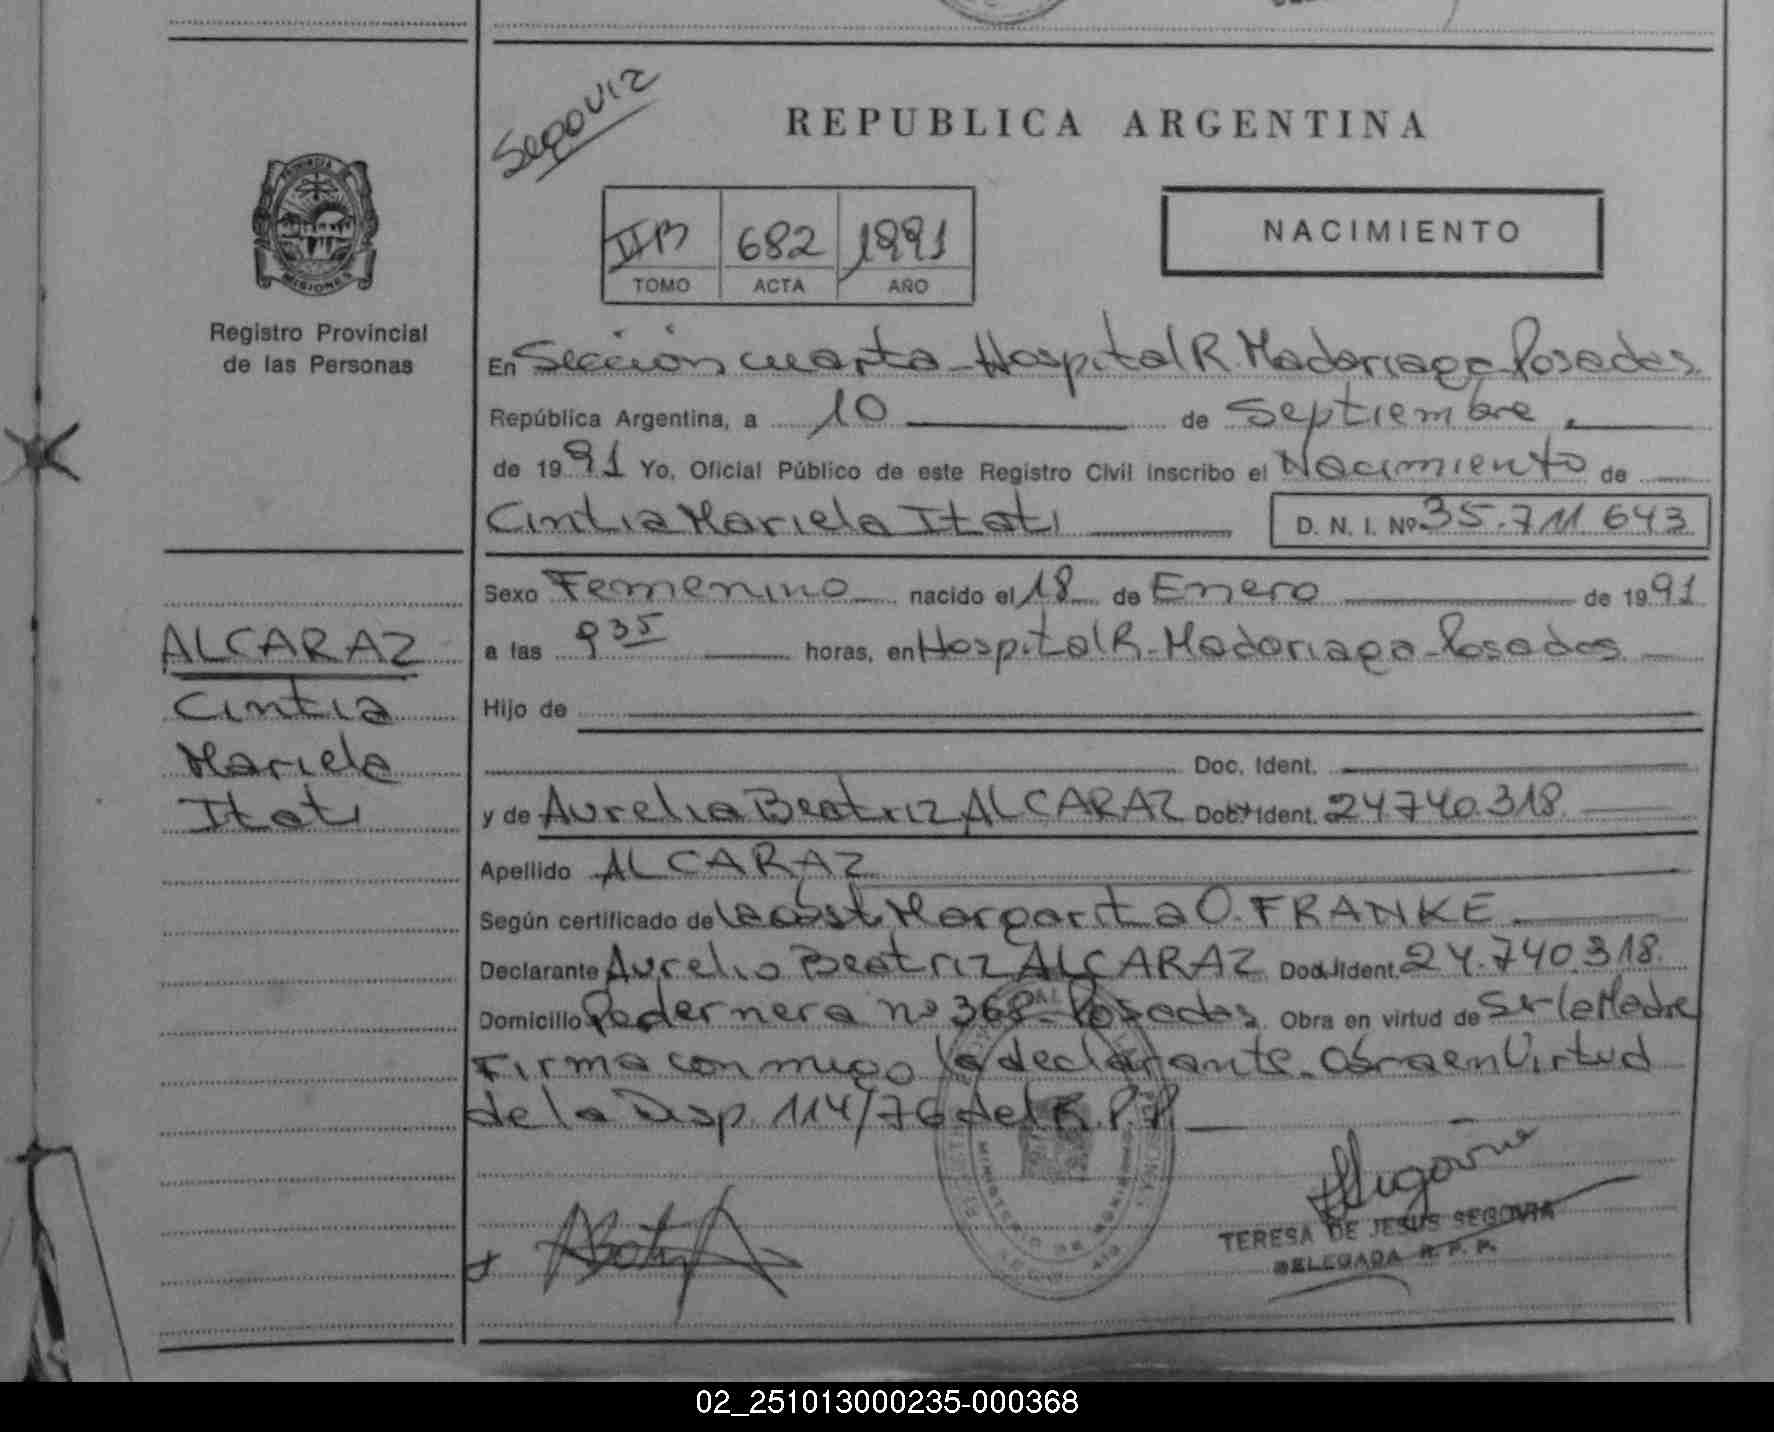 Segovia
REPUBLICA ARGENTINA
PROVINCIA
MISIONES
IIB 682 1991
TOMO ACTA AÑO
NACIMIENTO
Registro Provincial
de las Personas
En Sección cuarta - Hospital R. Madariaga - Posadas
República Argentina, a 10 de Septiembre
de 1991 Yo, Oficial Público de este Registro Civil inscribo el Nacimiento de
Cintia Mariela Itati D. N. I. Nº 35.711 643
Sexo Femenino nacido el 18 de Enero de 1991
ALCARAZ
Cintia
Mariela
Itati
a las 9 35 horas, en Hospital R. Madariaga - Posadas
Hijo de
Doc. Ident.
y de Aurelia Beatriz ALCARAZ Doc. Ident. 24.740.318
Apellido ALCARAZ
Según certificado de la obst Margarita O. FRANKE
Declarante Aurelia Beatriz ALCARAZ Doc. Ident. 24.740.318
Domicilio Pedernera nº 368 - Posadas. Obra en virtud de Ser la Madre
Firma conmigo la declarante. Obra en Virtud
de la Disp. 114/76 del R.P.P.
TERESA DE JESUS SEGOVIA
DELEGADA R. P. P.
02_251013000235-000368